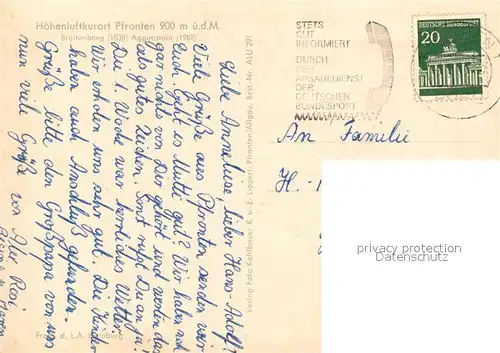 Höhenluftkurort Pfronten 900 m ü.d.M.
Breitenberg (1838) Aggenstein (1987)
Liebe Anneliese, lieber Hans-Adolf!
Viele Grüße aus Pfronten senden wir
Euch. Geht es Mutti gut? Wir haben noch
gar nichts von Dir gehört und werten das
als gutes Zeichen. Sonst rufst Du an, ja!
Die 1. Woche war herrliches Wetter.
Wir erholen uns sehr gut. Die Kinder
haben auch Anschluß gefunden.
Grüße bitte den Großpapa von uns
nun viel Grüße von Auer Rosi
Verlag Foto Kohlbauer R. u. E. Lippert, Pfronten/Allgäu, Best.-Nr. ALU 291
STETS
GUT
INFORMIERT
DURCH
DEN
ANSAGEDIENST
DER
DEUTSCHEN
BUNDESPOST
DEUTSCHE BUNDESPOST
20
An Familie
H.-
privacy protection
AnsichtskartenVersand.com